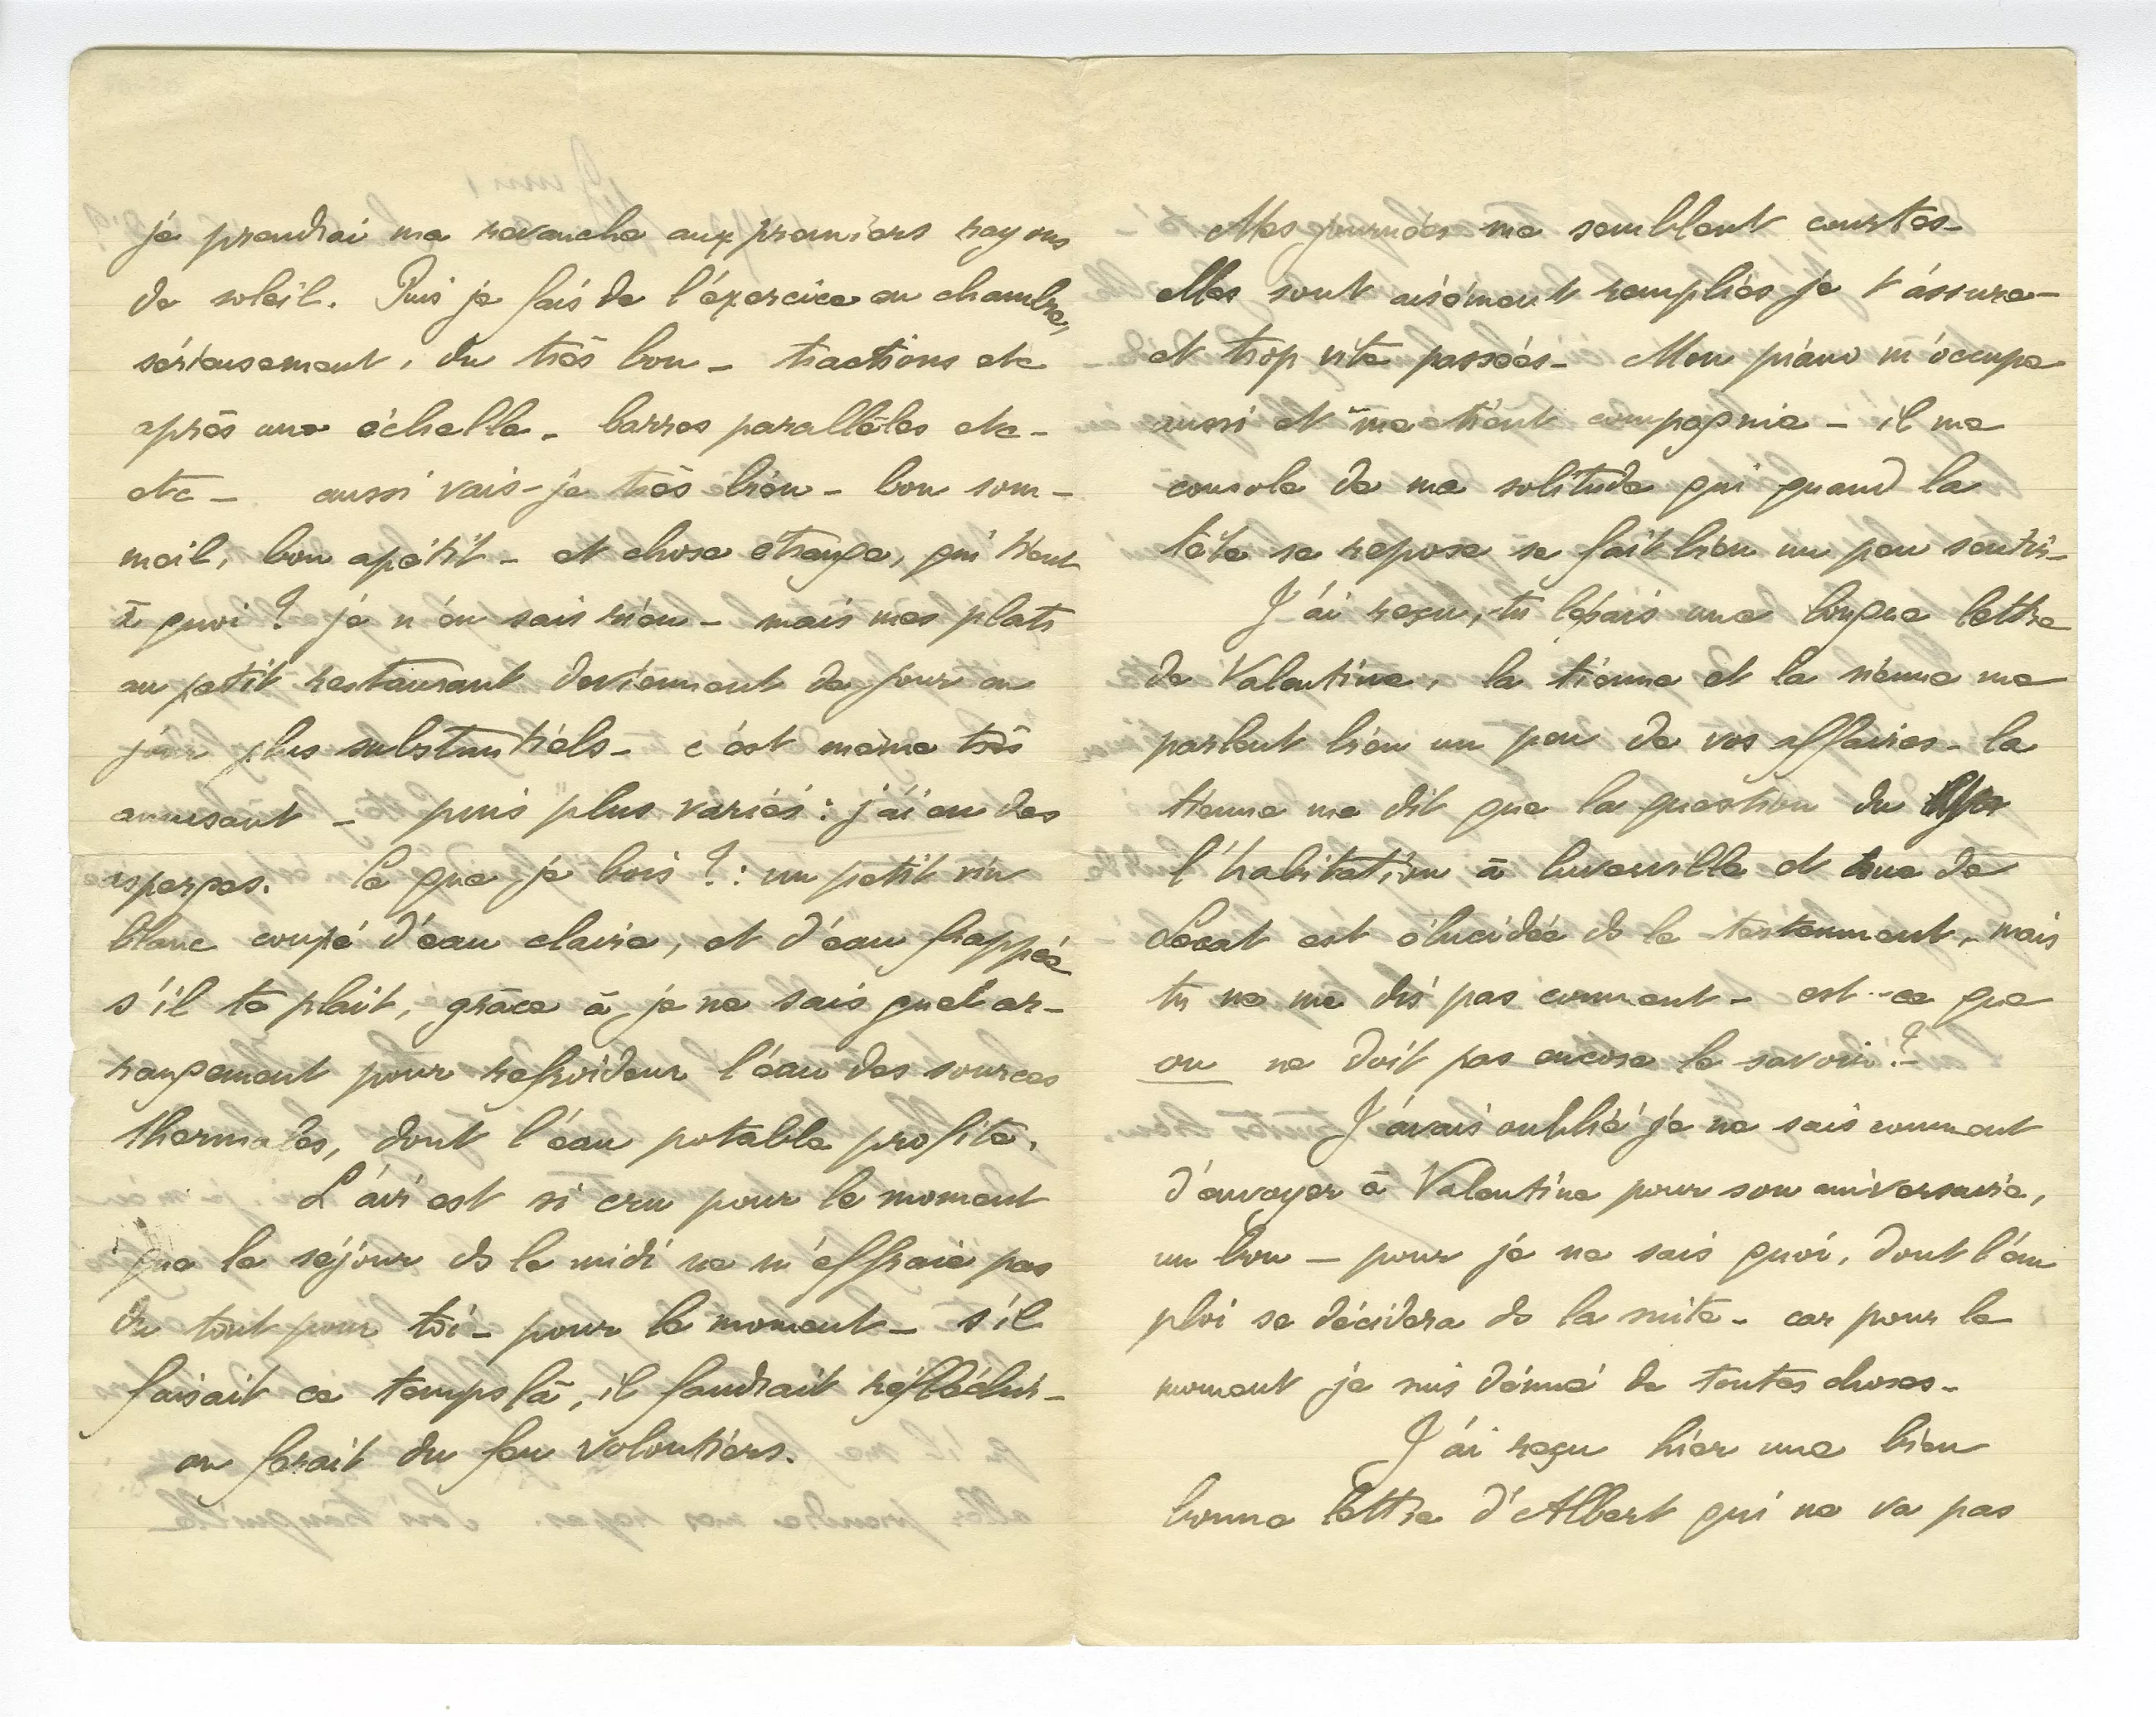 je prendrai ma revanche aux premiers rayons
de soleil. Puis je fais de l'éxercice en chambre,
sérieusement, du très bon – tractions etc
après une échelle – barres parallèles etc –
etc – aussi vais-je très bien – bon som-
meil, bon apétit – et chose étrange, qui tient
à quoi ? je n'en sais rien – mais mes plats
au petit restaurant deviennent de jour en
jour plus substantiels – c'est même très
amusant – puis plus variés : j'ai eu des
asperges. Ce que je bois ? : un petit vin
blanc coupé d'eau claire, et d'eau frappée
s'il te plait, grâce à je ne sais quel ar-
rangement pour refroideur l'eau des sources
thermales, dont l'eau potable profite.
L'air est si cru pour le moment
que le séjour ds le midi ne m'effraie pas
du tout pour toi – pour le moment – s'il
faisait ce temps là, il faudrait réfléchir –
on ferait du feu volontiers.
Mes journées me semblent courtes –
elles sont aisément remplies je t'assure –
et trop vite passées – Mon piano m'occupe
aussi et me tient compagnie – il me
console de ma solitude qui quand la
tête se repose se fait bien un peu sentir –
J'ai reçu, tu le sais une longue lettre
de Valentine, la tienne et la sienne me
parlent bien un peu de vos affaires – la
tienne me dit que la question du
l'habitation à Luvervilla et rue de
Sécat est élucidée ds le testament, mais
tu ne me dis pas comment – est-ce que
on ne doit pas encore le savoir ? –
J'avais oublié je ne sais comment
d'envoyer à Valentine pour son aniversaire,
un bon – pour je ne sais quoi, dont l'em
ploi se décidera ds la suite – car pour le
moment je suis dénué de toutes choses –
J'ai reçu hier une bien
bonne lettre d'Albert qui ne va pas